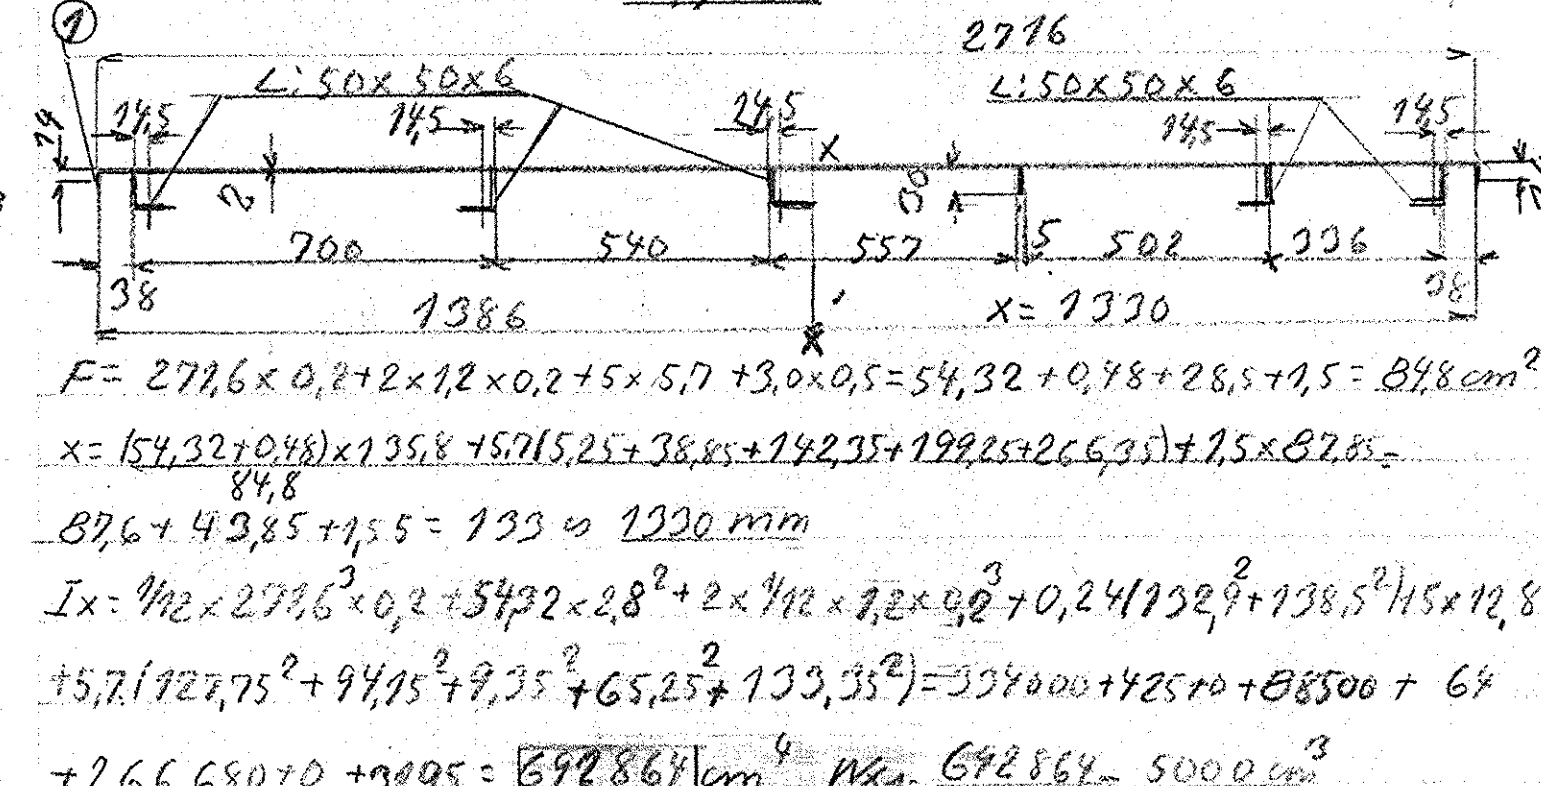 1
2716
L: 50x50x6
L: 50x50x6
14,5
14,5
14,5
14,5
14,5
14
X
2
30
700
540
557
5
502
336
38
38
1386
x = 1330
X
F = 271,6 x 0,2 + 2 x 1,2 x 0,2 + 5 x 5,7 + 3,0 x 0,5 = 54,32 + 0,48 + 28,5 + 1,5 = 84,8 cm²
x = (54,32 + 0,48) x 135,8 + 5,7 (5,25 + 38,85 + 142,35 + 199,25 + 266,35) + 1,5 x 87,85 =
84,8
87,6 + 43,85 + 1,55 = 133 ∽ 1330 mm
Ix = 1/12 x 271,6³ x 0,2 + 54,32 x 2,8² + 2 x 1/12 x 1,2 x 0,2³ + 0,24 (132,9² + 138,5²) + 5 x 12,8
+ 5,7 (127,75² + 94,15² + 9,35² + 65,25² + 133,35²) = 334000 + 425 + 0 + 88500 + 64
+ 266680 + 0 + 3195 = 692864 cm⁴ 692864 = 5000 cm³